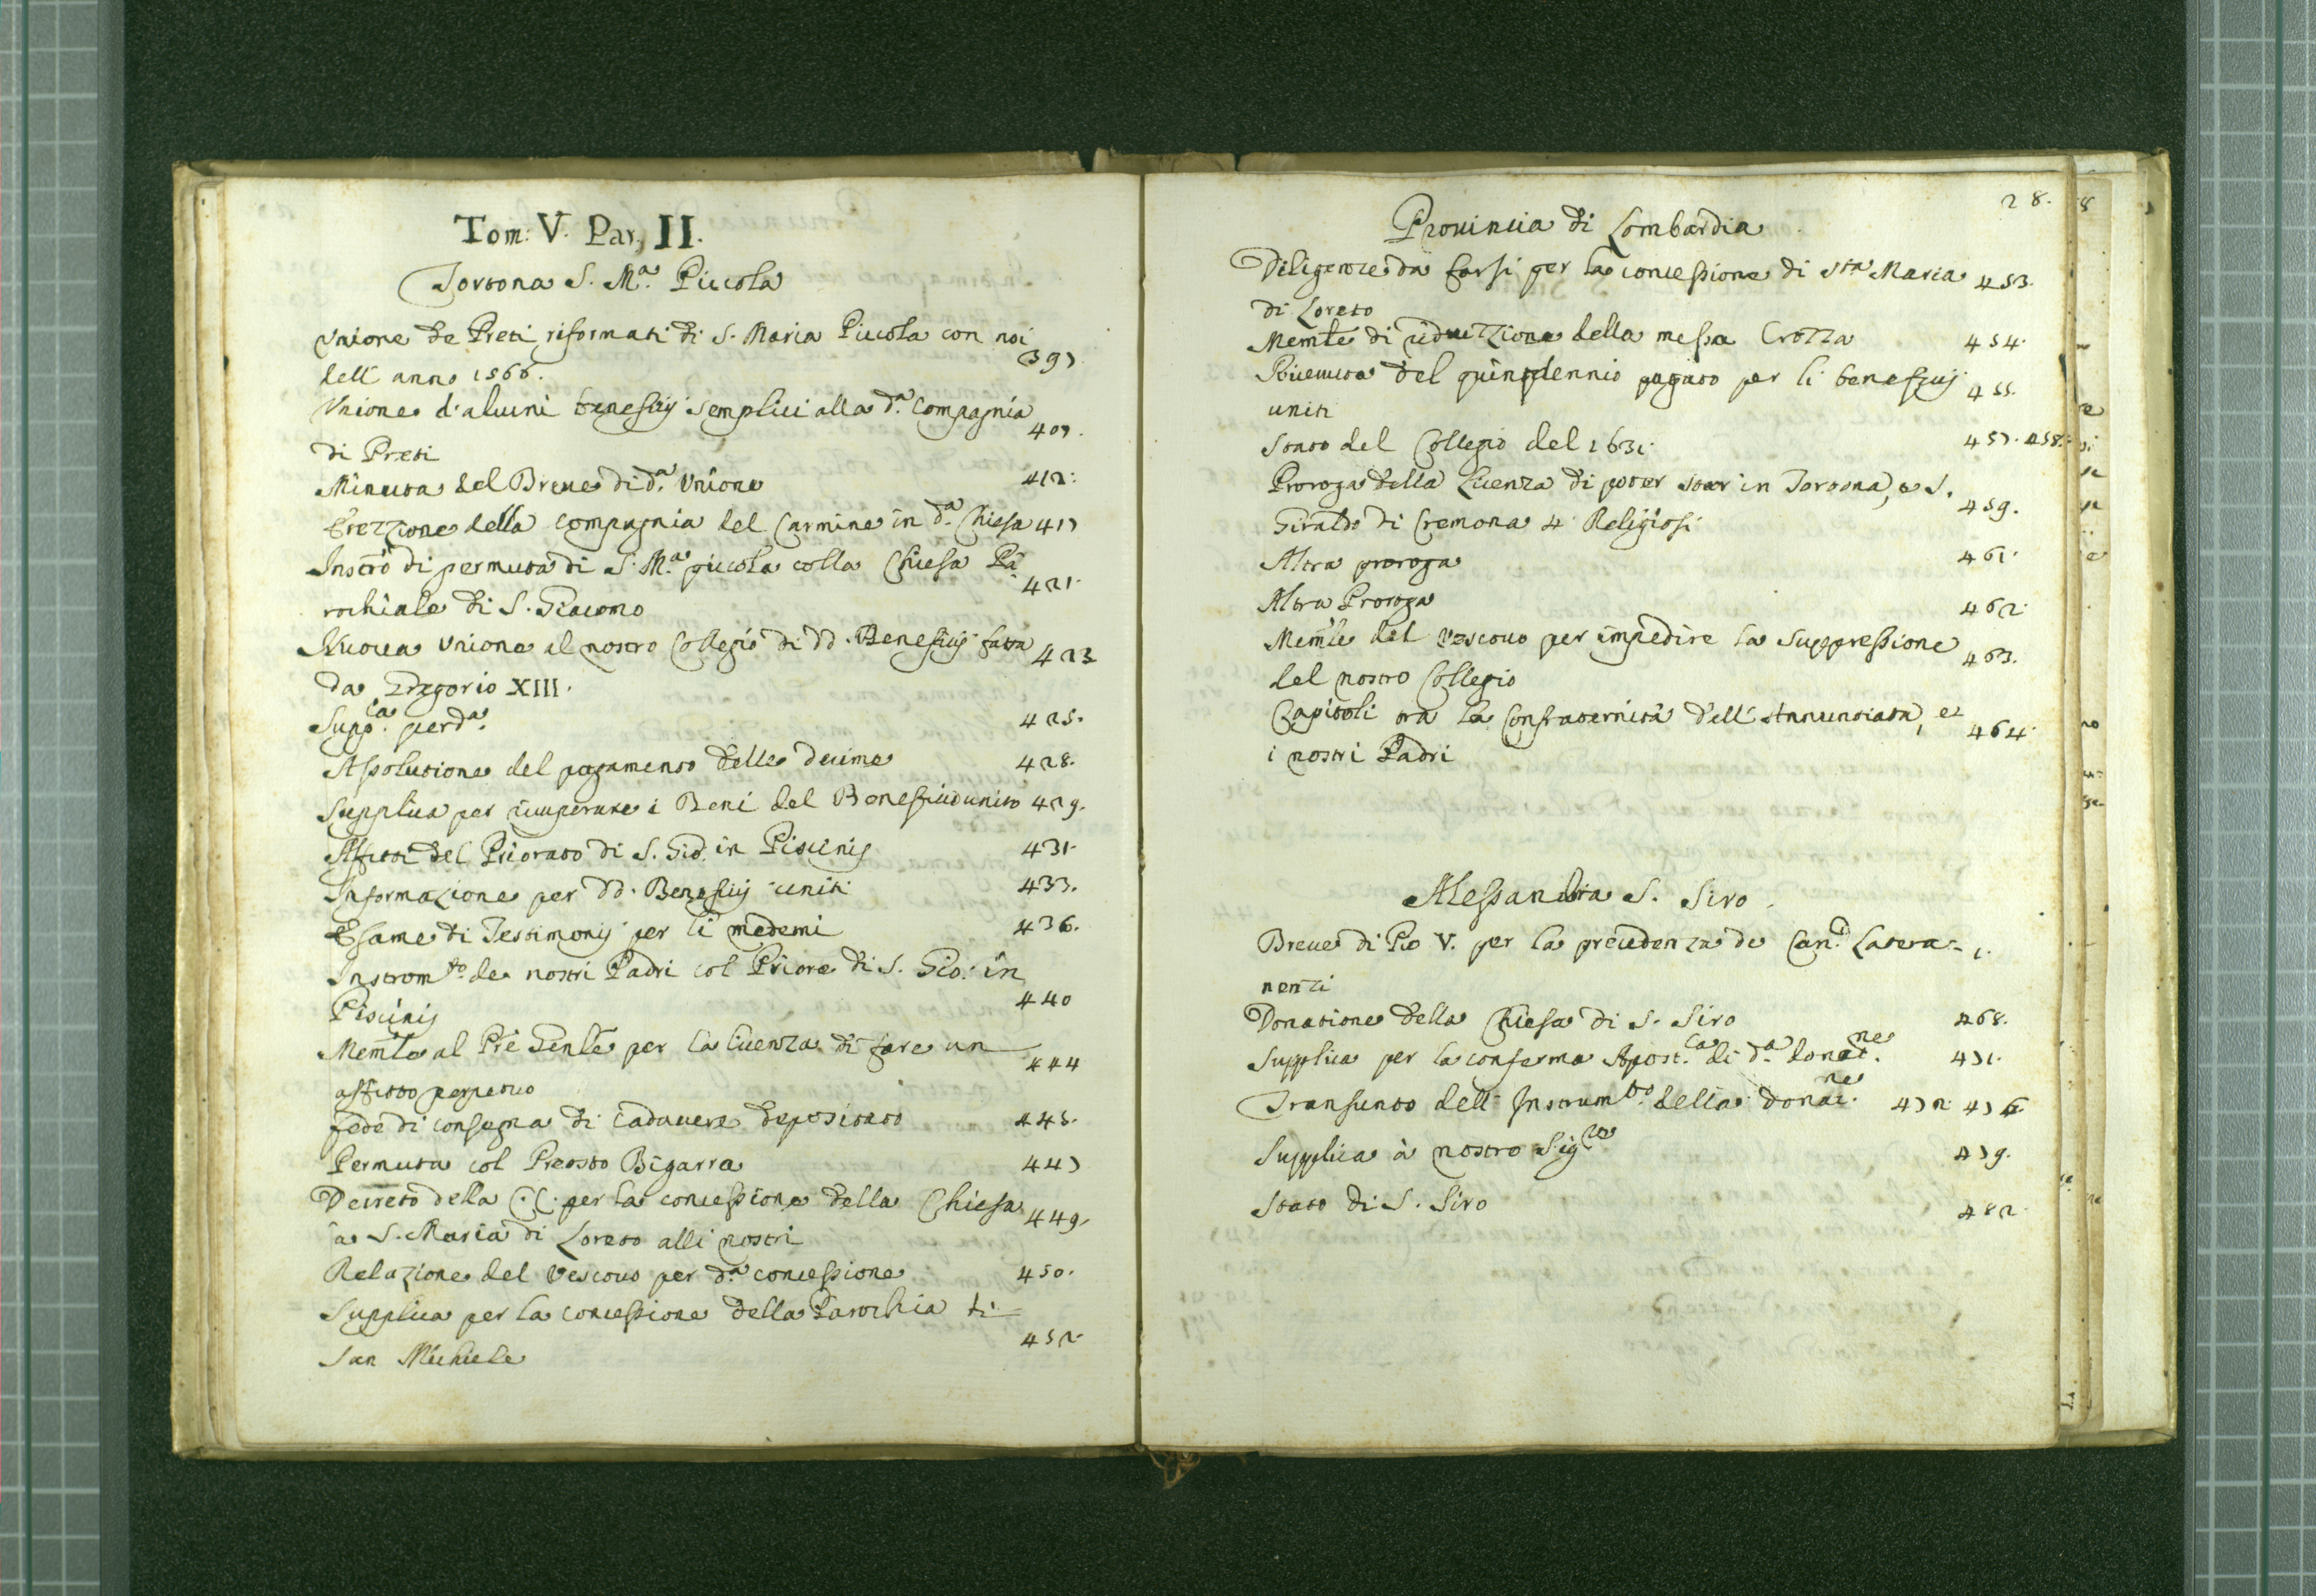 Tom: V. Par. II.
Tortona S. M.ª Piccola
Unione de Preti riformati di S. Maria Piccola con noi
dell' anno 1566. 397
Unione d'alcuni beneficij semplici alla d.ª Compagnia
di Preti 407.
Minuta del Breve di d.ª Unione 412.
Erezzione della compagnia del Carmine in d.ª Chiesa 417
Instrõ di permuta di S. M.ª piccola colla Chiesa Pa-
rochiale di S. Giacomo 421.
Nuova Unione al nostro Collegio di dd. Beneficij fatta
da Gregorio XIII. 423
Supp.ca per d.ª 425.
Assolutione del pagamento delle decime 428.
Supplica per ricuperare i Beni del Beneficio unito 429.
Affitti del Priorato di S. Gio. in Piscinis 431.
Informazione per dd. Beneficij uniti 433.
Esame di Testimonij per li medemi 436.
Instrom.to de nostri Padri col Priore di S. Gio. in
Piscinis 440
Memle al Pre Genle per la licenza di fare un
affitto perpetuo 444
fede di consegna di Cadavere depositato 445.
Permuta col Preosto Bigarra 447
Decreto della C.C. per la concessione della Chiesa
a S. Maria di Loreto alli nostri 449.
Relazione del Vescovo per d.ª concessione 450.
Supplica per la concessione della Parochia di
San Michele 452.
28.
Provincia di Lombardia
Diligenze da farsi per la concessione di Sta Maria 453.
di Loreto
Memle di riduzzione della messa Crozza 454.
Ricevuta del quindennio pagato per li beneficij
uniti 455.
Stato del Collegio del 1631. 457. 458.
Proroga della licenza di poter star in Tortona, e S.
Giraldo di Cremona 4 Religiosi 459.
Altra proroga 461.
Altra Proroga 462.
Memle del Vescovo per impedire la suppressione
del nostro Collegio 463.
Capitoli tra la Confraternità dell' Annuntiata, et
i nostri Padri 464.
Alessandria S. Siro.
Breve di Pio V. per la precedenza de Can.ci Latera- 1.
nensi
Donatione della Chiesa di S. Siro 468.
Supplica per la conferma Apost.ca di d.ª donat.ne 471.
Transunto dell' Instrum.to della donat.ne 472. 476.
Supplica à nostro Sig.re 479.
Stato di S. Siro 482.